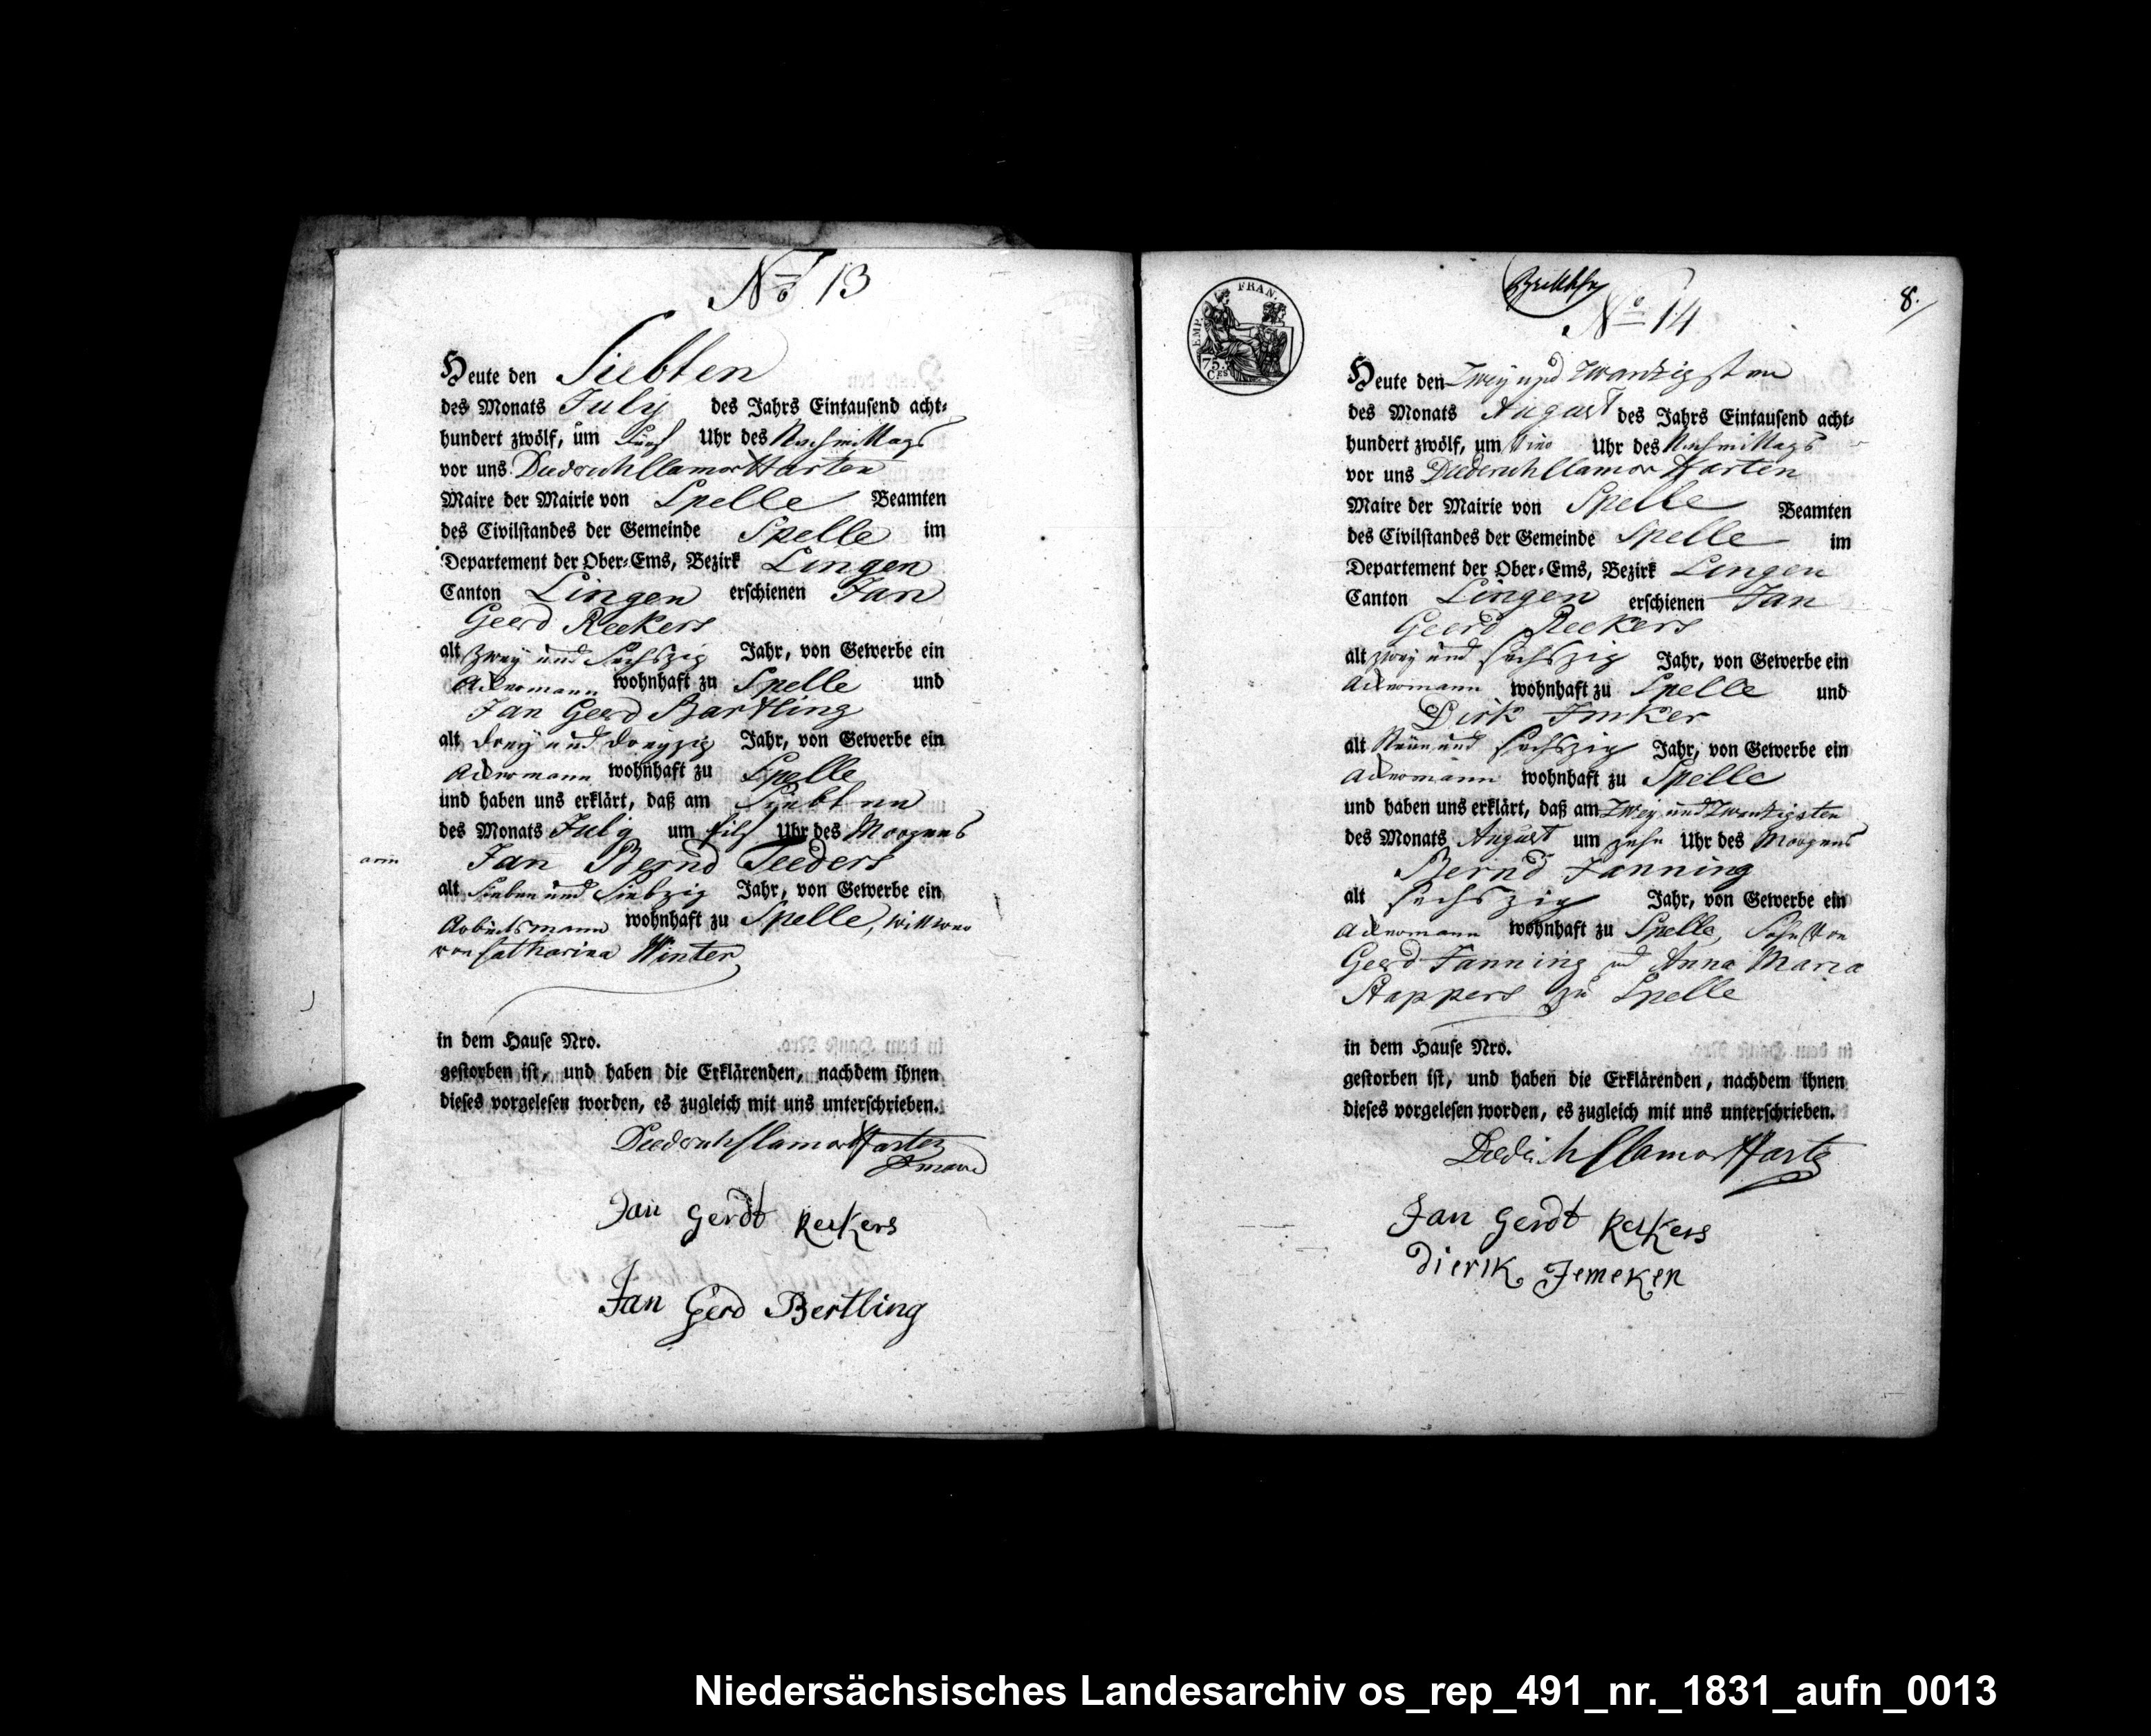 No 13
Heute den Siebten
des Monats July des Jahrs Eintausend acht-
hundert zwölf, um Fünf Uhr des Nachmittags
vor uns Diederich Clamor Harten
Maire der Mairie von Spelle Beamten
des Civilstandes der Gemeinde Spelle im
Departement der Ober-Ems, Bezirk Lingen
Canton Lingen erschienen Jan
Geerd Reekers
alt zwey und Sechszig Jahr, von Gewerbe ein
Ackermann wohnhaft zu Spelle und
Jan Geerd Bartling
alt drey und dreyzig Jahr, von Gewerbe ein
Ackermann wohnhaft zu Spelle
und haben uns erklärt, daß am Siebten
des Monats July um Eilf Uhr des Morgens
arm Jan Bernd Teeders
alt Sieben und Siebzig Jahr, von Gewerbe ein
Arbeitsmann wohnhaft zu Spelle, Wittwer
von Catharina Winter
in dem Hause Nro.
gestorben ist, und haben die Erklärenden, nachdem ihnen
dieses vorgelesen worden, es zugleich mit uns unterschrieben.
Diederich Clamor Harten
Jan Gerdt Reekers
Jan Gerd Bertling
EMP. FRAN.
75. CES
No 14
8.
Heute den Zwey und Zwanzigsten
des Monats August des Jahrs Eintausend acht-
hundert zwölf, um Vier Uhr des Nachmittags
vor uns Diederich Clamor Harten
Maire der Mairie von Spelle Beamten
des Civilstandes der Gemeinde Spelle im
Departement der Ober-Ems, Bezirk Lingen
Canton Lingen erschienen Jan
Geerd Reekers
alt zwey und sechszig Jahr, von Gewerbe ein
Ackermann wohnhaft zu Spelle und
Dirk Imker
alt Neun und sechszig Jahr, von Gewerbe ein
Ackermann wohnhaft zu Spelle
und haben uns erklärt, daß am Zwey und Zwanzigsten
des Monats August um zehn Uhr des Morgens
Bernd Janning
alt sechszig Jahr, von Gewerbe ein
Ackermann wohnhaft zu Spelle, Sohn von
Geerd Janning und Anna Maria
Stappers zu Spelle
in dem Hause Nro.
gestorben ist, und haben die Erklärenden, nachdem ihnen
dieses vorgelesen worden, es zugleich mit uns unterschrieben.
Diedrich Clamor Harten
Jan Gerdt Reekers
Dierik Jemeken
Niedersächsisches Landesarchiv os_rep_491_nr._1831_aufn_0013